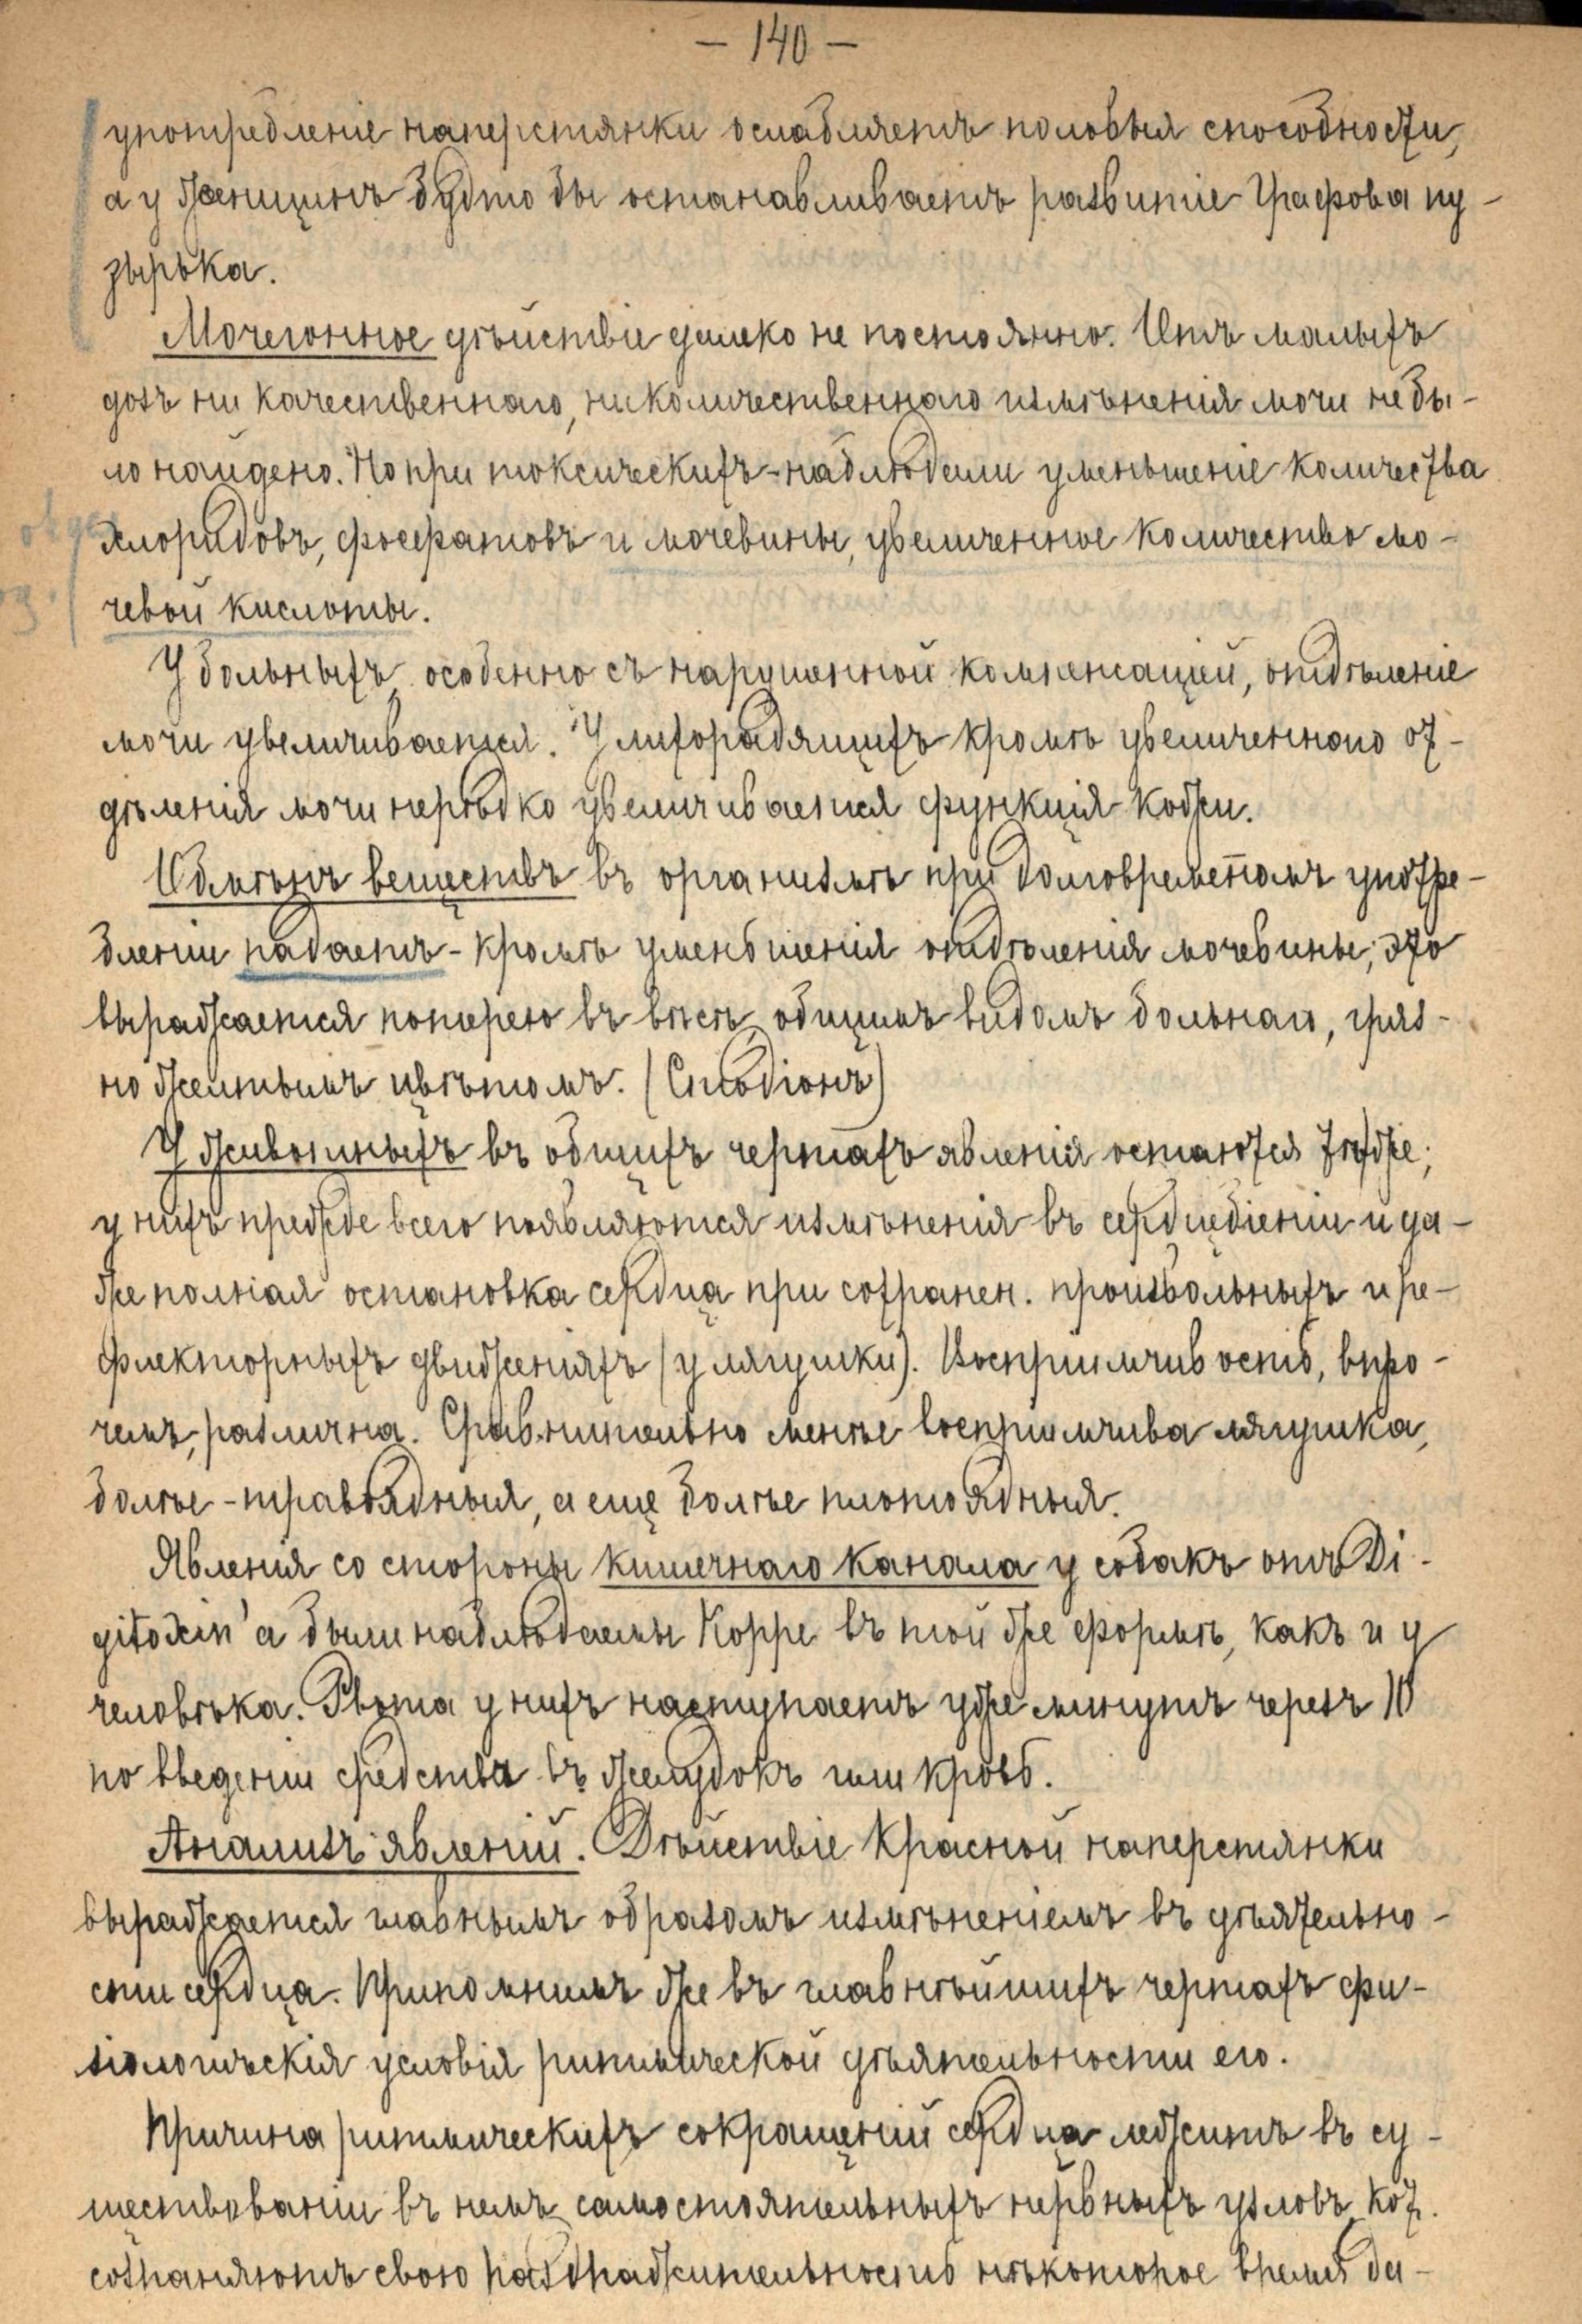 — 140 —
употребленіе наперстянки ослабляетъ половыя способности,
а у женщинъ будто бы останавливаетъ развитіе Графова пу-
зырька.
Мочегонное дѣйствіе далеко не постоянно. Отъ малыхъ
дозъ ни качественнаго, ни количественнаго измѣненія мочи не бы-
ло найдено. Но при токсическихъ - наблюдали уменьшеніе количества
хлоридовъ, фосфатовъ и мочевины, увеличенное количество мо-
чевой кислоты.
У больныхъ, особенно съ нарушенной компенсаціей, отдѣленіе
мочи увеличивается. У лихорадящихъ кромѣ увеличеннаго от-
дѣленія мочи нерѣдко увеличивается функція кожи.
Обмѣнъ веществъ въ организмѣ при долговременномъ употре-
бленіи падаетъ - кромѣ уменьшенія отдѣленія мочевины, это
выражается потерею въ вѣсѣ, общимъ видомъ больнаго, гряз-
но желтымъ цвѣтомъ. (Стадіонъ)
У животныхъ въ общихъ чертахъ явленія остаются тѣ же;
у нихъ прежде всего появляются измѣненія въ сердцебіеніи и да-
же полная остановка сердца при сохранен. произвольныхъ и ре-
флекторныхъ движеніяхъ (у лягушки). Воспріимчивость, впро-
чемъ, различна. Сравнительно менѣе воспріимчива лягушка,
болѣе - травоядныя, а еще болѣе плотоядныя.
Явленія со стороны кишечнаго канала у собакъ отъ Di-
gitoxin'а были наблюдаемы Корре въ той же формѣ, какъ и у
человѣка. Рвота у нихъ наступаетъ уже минутъ черезъ 10
по введеніи средства въ желудокъ или кровь.
Анализъ явленій. Дѣйствіе красной наперстянки
выражается главнымъ образомъ измѣненіемъ въ дѣятельно-
сти сердца. Припомнимъ же въ главнѣйшихъ чертахъ фи-
зіологическія условія ритмической дѣятельности его.
Причина ритмическихъ сокращеній сердца лежитъ въ су-
ществованіи въ немъ самостоятельныхъ нервныхъ узловъ, кот.
сохраняютъ свою раздражительность нѣкоторое время да-